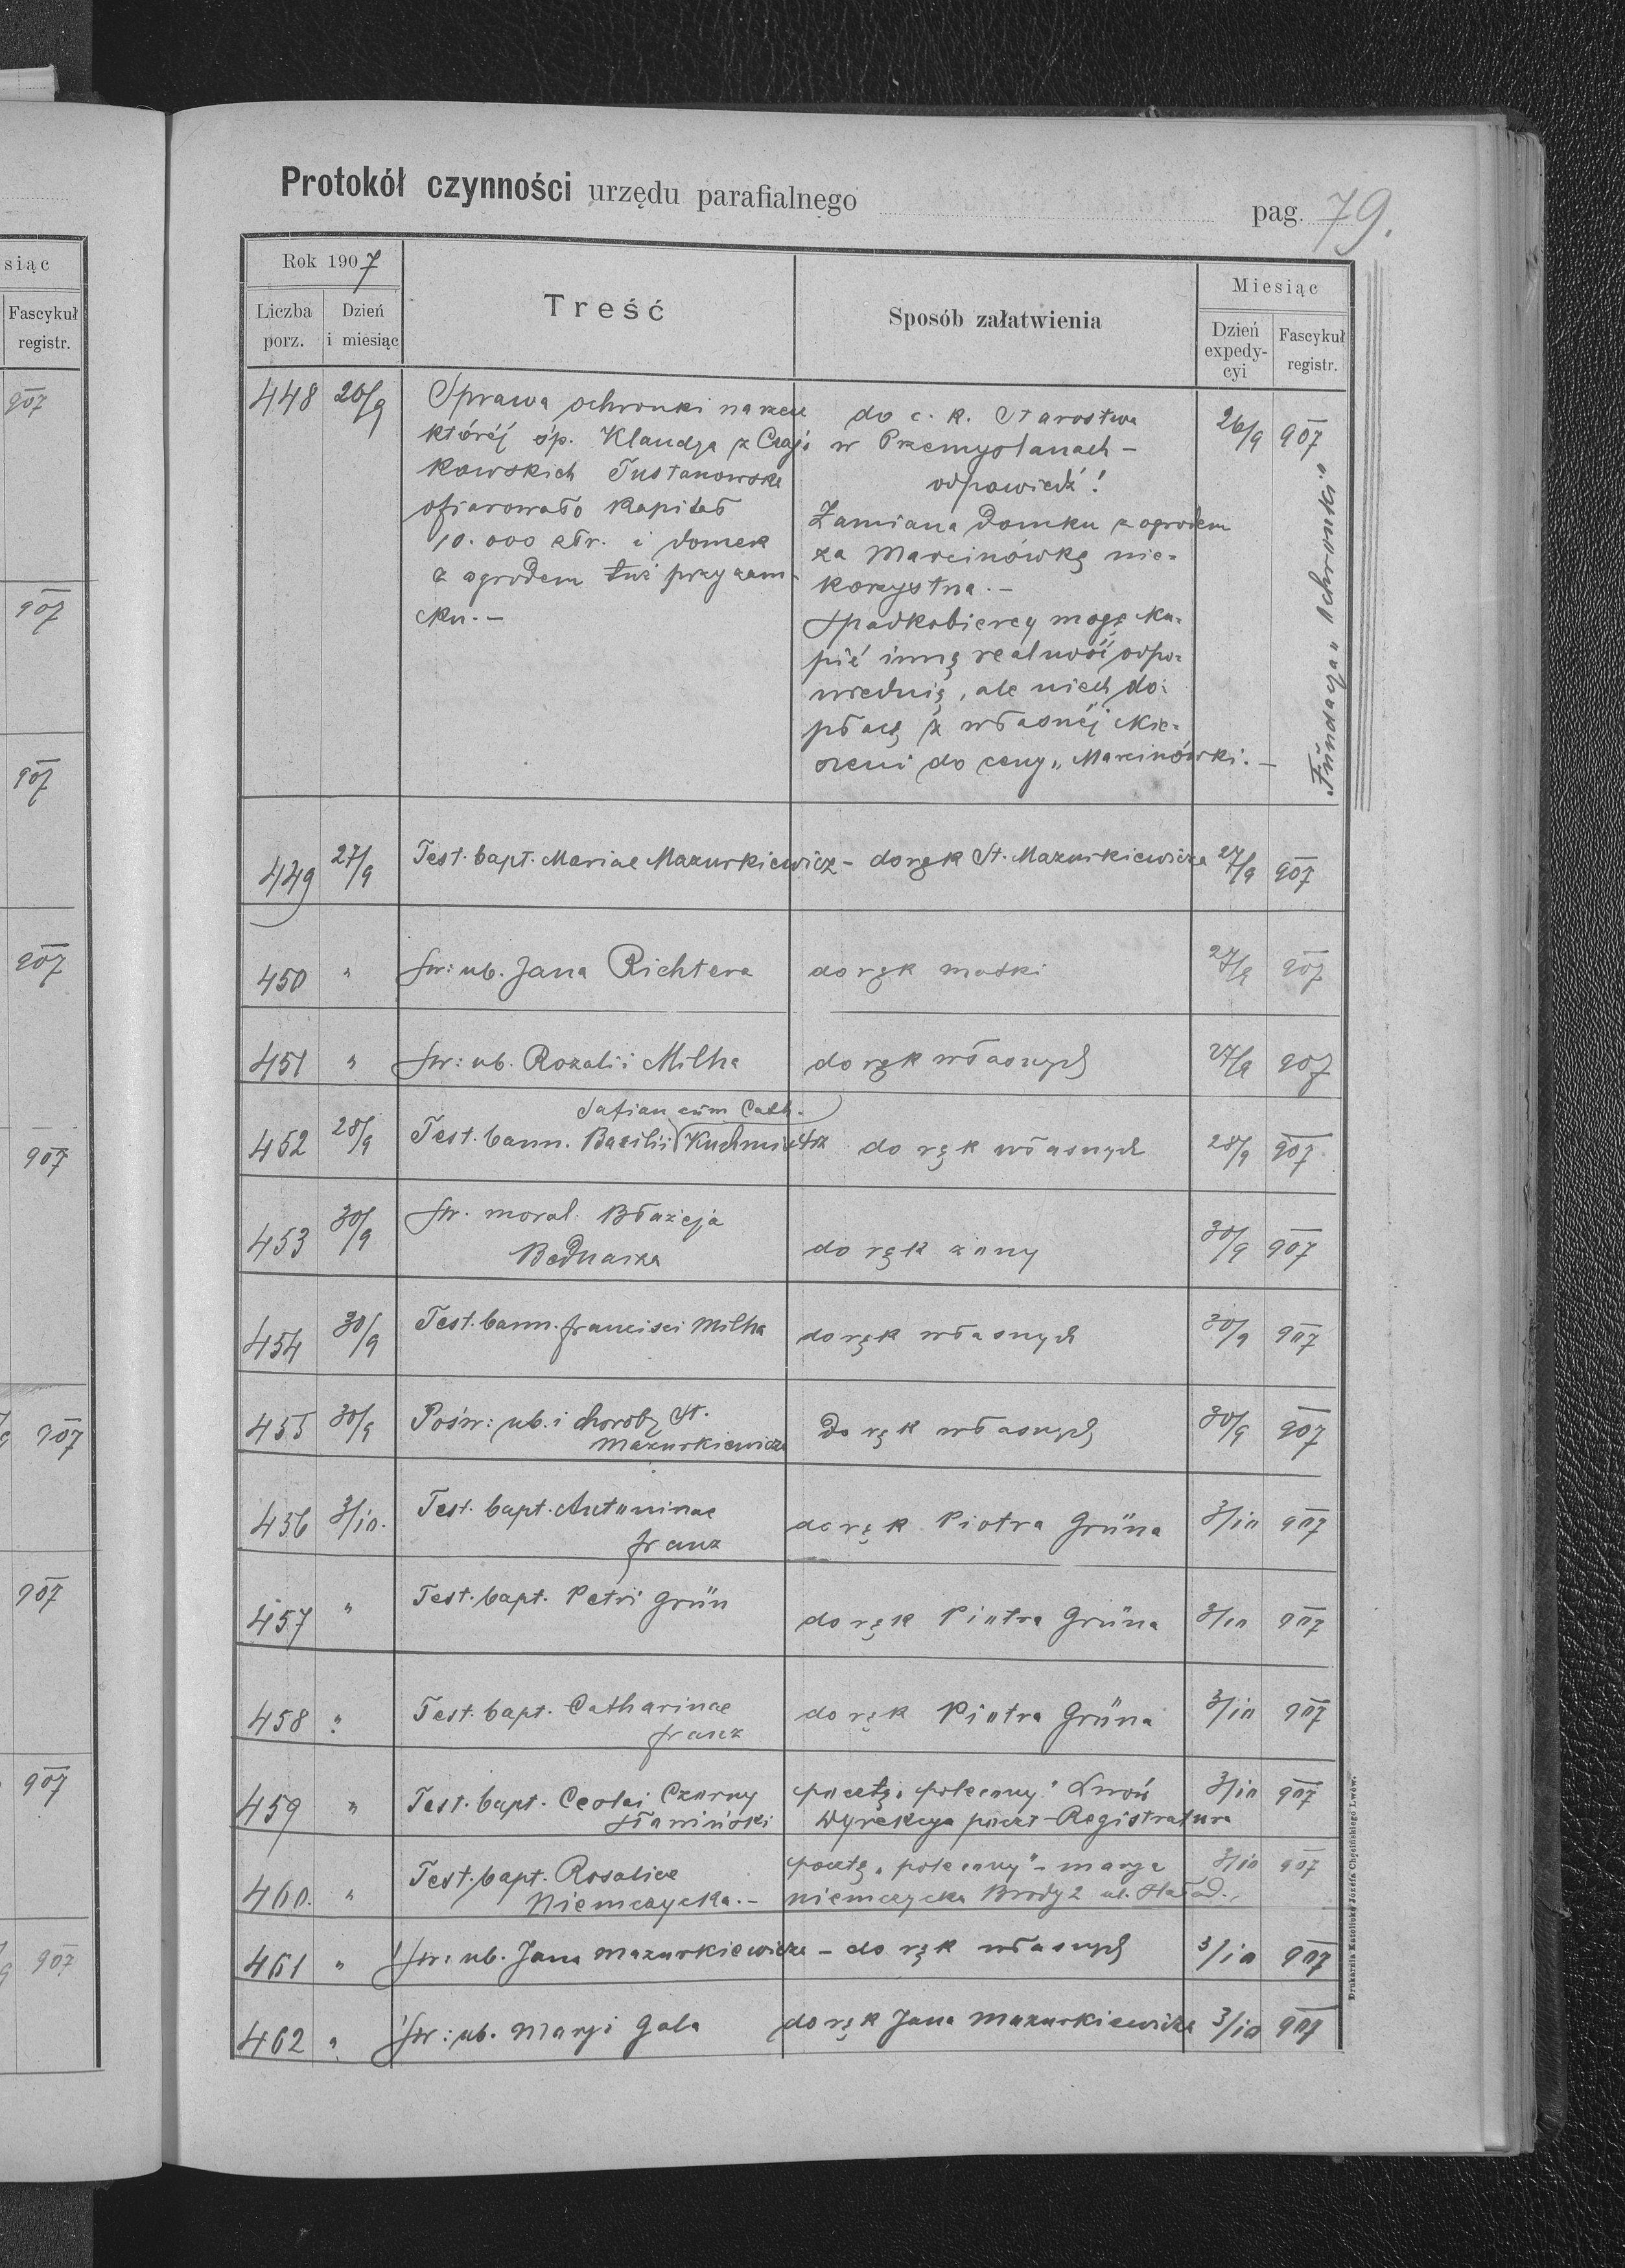 siąc
Fascykuł
registr.
907
907
907
907
907
907
907
907
907
Protokół czynności urzędu parafialnego pag. 79.
Rok 1907
Miesiąc
Liczba porz. Dzień i miesiąc Treść Sposób załatwienia Dzień expedycyi Fascykuł registr.
448 26/9 Sprawa ochronki na rzecz do c. k. Starostwa 26/9 907
której śp. Klaudya z Czaj- w Przemyślanach -
kowskich Tustanowska odpowiedź!
ofiarowała kapitał Zamiana domku z ogrodem
10.000 złr. i domek za Marcinówkę nie-
z ogrodem tuż przy zam- korzystna. -
ku. - Spadkobiercy mogą ku-
pić inną realność odpo-
wiednią, ale niech do-
płacą z własnej kie-
szeni do ceny „Marcinówki. -
„Fundacya „Ochronki"
449 27/9 Test. bapt. Mariae Mazurkiewicz - do rąk St. Mazurkiewicza 27/9 907
450 " Św: ub. Jana Richtera do rąk matki 27/9 907
451 " Św: ub. Rozalii Milha do rąk własnych 27/9 907
Safian cum Cath.
452 28/9 Test. bann. Basilii Kuchmistrz do rąk własnych 28/9 907
453 30/9 Św. moral. Błażeja
Bednarza do rąk żony 30/9 907
454 30/9 Test. bann. Francisci Milha do rąk własnych 30/9 907
455 30/9 Pośw: ub. i choroby St.
Mazurkiewicza do rąk własnych 30/9 907
456 3/10. Test. bapt. Antoninae
Franz do rąk Piotra Grüna 3/10 907
457 " Test. bapt. Petri Grün do rąk Piotra Grüna 3/10 907
458 " Test. bapt. Catharinae
Franz do rąk Piotra Grüna 3/10 907
459 " Test. bapt. Czorny pocztą „polecony" Lwów 3/10 907
Dyrekcya poczt - Registratura
460. " Test. bapt. Rosaliae pocztą „polecony" - Marya 3/10 907
Niemczycka. - Niemczycka Brody 2 ul.
461 " Św: ub. Jana Mazurkiewicza - do rąk własnych 3/10 907
462 " Św: ub. Maryi Gala do rąk Jana Mazurkiewicza 3/10 907
Drukarnia Katolicka Józefa Chęcińskiego Lwów.